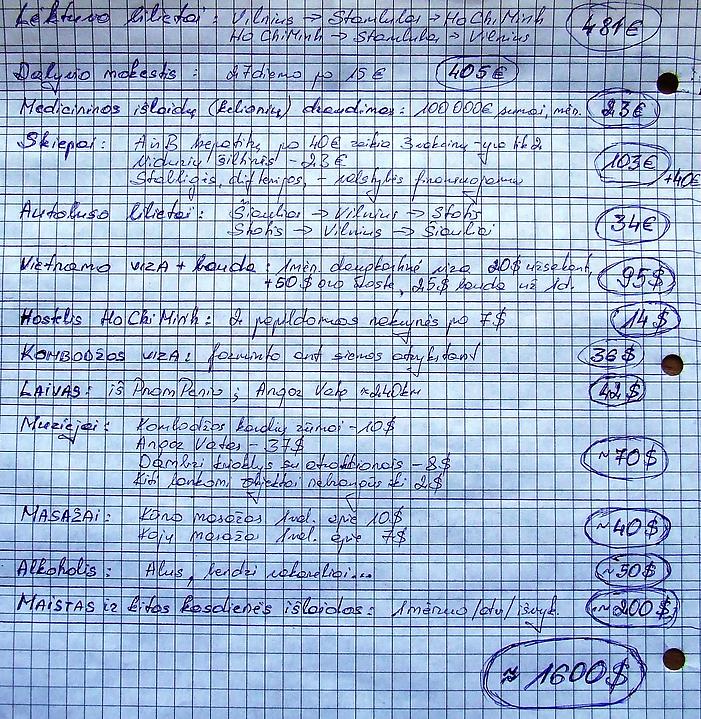 Lėktuvo bilietai: Vilnius → Stambulas → Ho Chi Minh 481€
Ho Chi Minh → Stambulas → Vilnius
Dalyvio mokestis: 27 dienos po 15€ 405€
Medicininos išlaidų (kelionių) draudimas: 100 000€ sumai, mėn. 23€
Skiepai: A ir B hepatitų po 40€ reikia 3 vakcinų - yra tik 2 103€ +40€
Vidurių šiltinės - 23€
Stabligės, difterijos, - valstybės finansuojama
Autobuso bilietai: Šiauliai → Vilnius → Stotis 34€
Stotis → Vilnius → Šiauliai
Vietnamo viza + bauda: 1 mėn. daugkartinė viza 20$ užsakant, 95$
+50$ oro uoste, 25$ bauda už 1d.
Hostelis Ho Chi Minh: 2 papildomos nakvynės po 7$ 14$
Kombodžos viza: forminta ant sienos atvykstant 36$
LAIVAS: iš Pnom Penio į Angor Vatą ≈240km 42$
Muziejai: Kombodžos karalių rūmai - 10$ ~70$
Angor Vatas - 37$
Dambri krioklys su atrakcionais - 8$
Kiti lankomi objektai nebrangūs iki 2$
MASAŽAI: Kūno masažas 1val. apie 10$ ~40$
Kojų masažas 1val. apie 7$
Alkoholis: Alus, bendri vakarėliai... ~50$
MAISTAS ir kitos kasdienės išlaidos: 1 mėnuo /atv/išvyk. ~200$
≈ 1600$